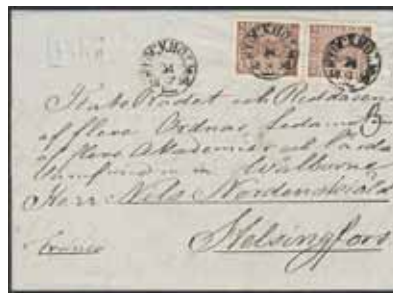 STOCKHOLM
STOCKHOLM
STOCKHOLM
Stats Rådet och Riddaren
af flere Ordnar, Ledamot
af flere Akademier och Lärda
Samfund m m Wälborne
Herr Nils Nordenskiöld
Helsingfors
franco